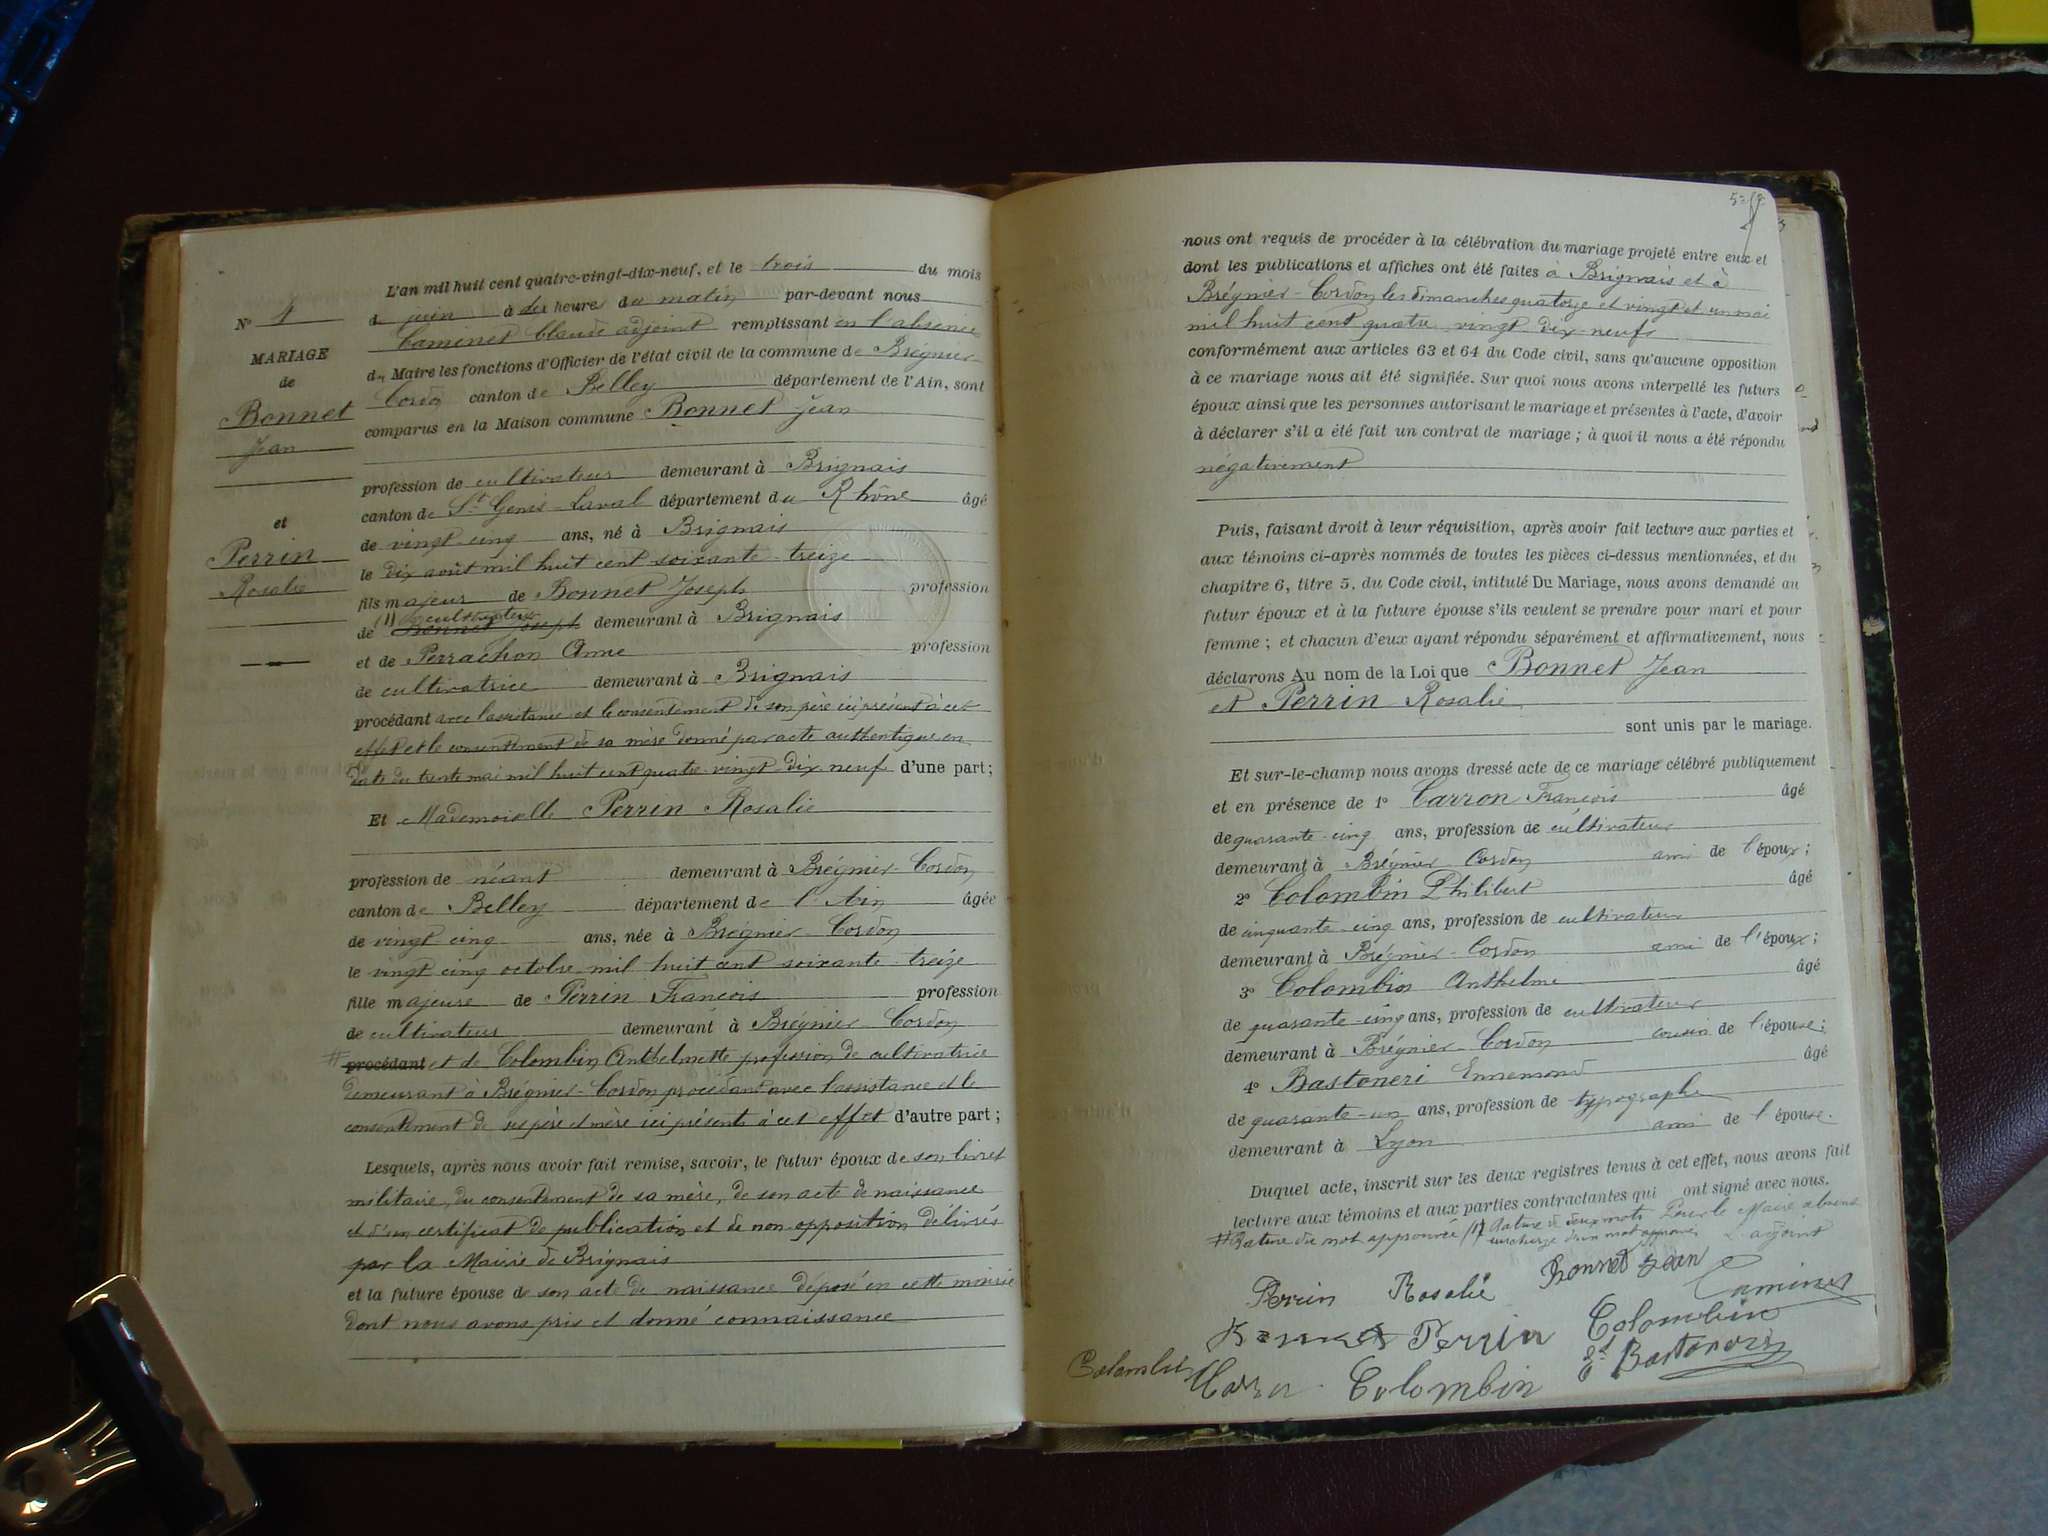 L'an mil huit cent quatre-vingt-dix-neuf, et le trois du mois
de juin à dix heures du matin par-devant nous
Caminet Claude adjoint remplissant en l'absence
du Maire les fonctions d'Officier de l'état civil de la commune de Brégnier
Cordon canton de Belley département de l'Ain, sont
comparus en la Maison commune Bonnet Jean
N° 4
MARIAGE
de
Bonnet
Jean
et
Perrin
Rosalie
profession de cultivateur demeurant à Brignais
canton de St Genis-Laval département du Rhône âgé
de vingt-cinq ans, né à Brignais
le dix août mil huit cent soixante-treize
fils majeur de Bonnet Joseph profession
(1) cultivateur
de Bonnet Joseph demeurant à Brignais
et de Perrachon Anne profession
de cultivatrice demeurant à Brignais
procédant avec l'assistance et le consentement de son père ici présent à cet
effet et le consentement de sa mère donné par acte authentique en
date du trente mai mil huit cent quatre-vingt-dix-neuf d'une part;
Et Mademoiselle Perrin Rosalie
profession de néant demeurant à Brégnier-Cordon
canton de Belley département de l'Ain âgée
de vingt-cinq ans, née à Brégnier-Cordon
le vingt cinq octobre mil huit cent soixante-treize
fille majeure de Perrin François profession
de cultivateur demeurant à Brégnier-Cordon
# procédant et de Colombin Anthelmette profession de cultivatrice
demeurant à Brégnier-Cordon procédant avec l'assistance et le
consentement de ses père et mère ici présents à cet effet d'autre part;
Lesquels, après nous avoir fait remise, savoir, le futur époux de son livret
militaire, du consentement de sa mère, de son acte de naissance
et d'un certificat de publication et de non-opposition délivrés
par la Mairie de Brignais
et la future épouse de son acte de naissance déposé en cette mairie
dont nous avons pris et donné connaissance
nous ont requis de procéder à la célébration du mariage projeté entre eux et
dont les publications et affiches ont été faites à Brignais et à
Brégnier-Cordon les dimanches quatorze et vingt et un mai
mil huit cent quatre-vingt-dix-neuf
conformément aux articles 63 et 64 du Code civil, sans qu'aucune opposition
à ce mariage nous ait été signifiée. Sur quoi nous avons interpellé les futurs
époux ainsi que les personnes autorisant le mariage et présentes à l'acte, d'avoir
à déclarer s'il a été fait un contrat de mariage; à quoi il nous a été répondu
négativement
Puis, faisant droit à leur réquisition, après avoir fait lecture aux parties et
aux témoins ci-après nommés de toutes les pièces ci-dessus mentionnées, et du
chapitre 6, titre 5, du Code civil, intitulé Du Mariage, nous avons demandé au
futur époux et à la future épouse s'ils veulent se prendre pour mari et pour
femme; et chacun d'eux ayant répondu séparément et affirmativement, nous
déclarons Au nom de la Loi que Bonnet Jean
et Perrin Rosalie
sont unis par le mariage.
Et sur-le-champ nous avons dressé acte de ce mariage célébré publiquement
et en présence de 1° Carron François âgé
de quarante-cinq ans, profession de cultivateur
demeurant à Brégnier-Cordon ami de l'époux;
2° Colombin Philibert âgé
de cinquante-cinq ans, profession de cultivateur
demeurant à Brégnier-Cordon ami de l'époux;
3° Colombin Anthelme âgé
de quarante-cinq ans, profession de cultivateur
demeurant à Brégnier-Cordon cousin de l'épouse;
4° Bastoneri Ennemond âgé
de quarante-un ans, profession de typographe
demeurant à Lyon ami de l'épouse.
Duquel acte, inscrit sur les deux registres tenus à cet effet, nous avons fait
lecture aux témoins et aux parties contractantes qui ont signé avec nous.
# Rature du mot approuvée (1) Rature de deux mots Pour le Maire absent
surcharge d'un mot approuvé L'adjoint
Perrin Rosalie Bonnet Jean Caminet
Bonnet Perrin Colombin
Colombin Carron Colombin Et Bastoneri